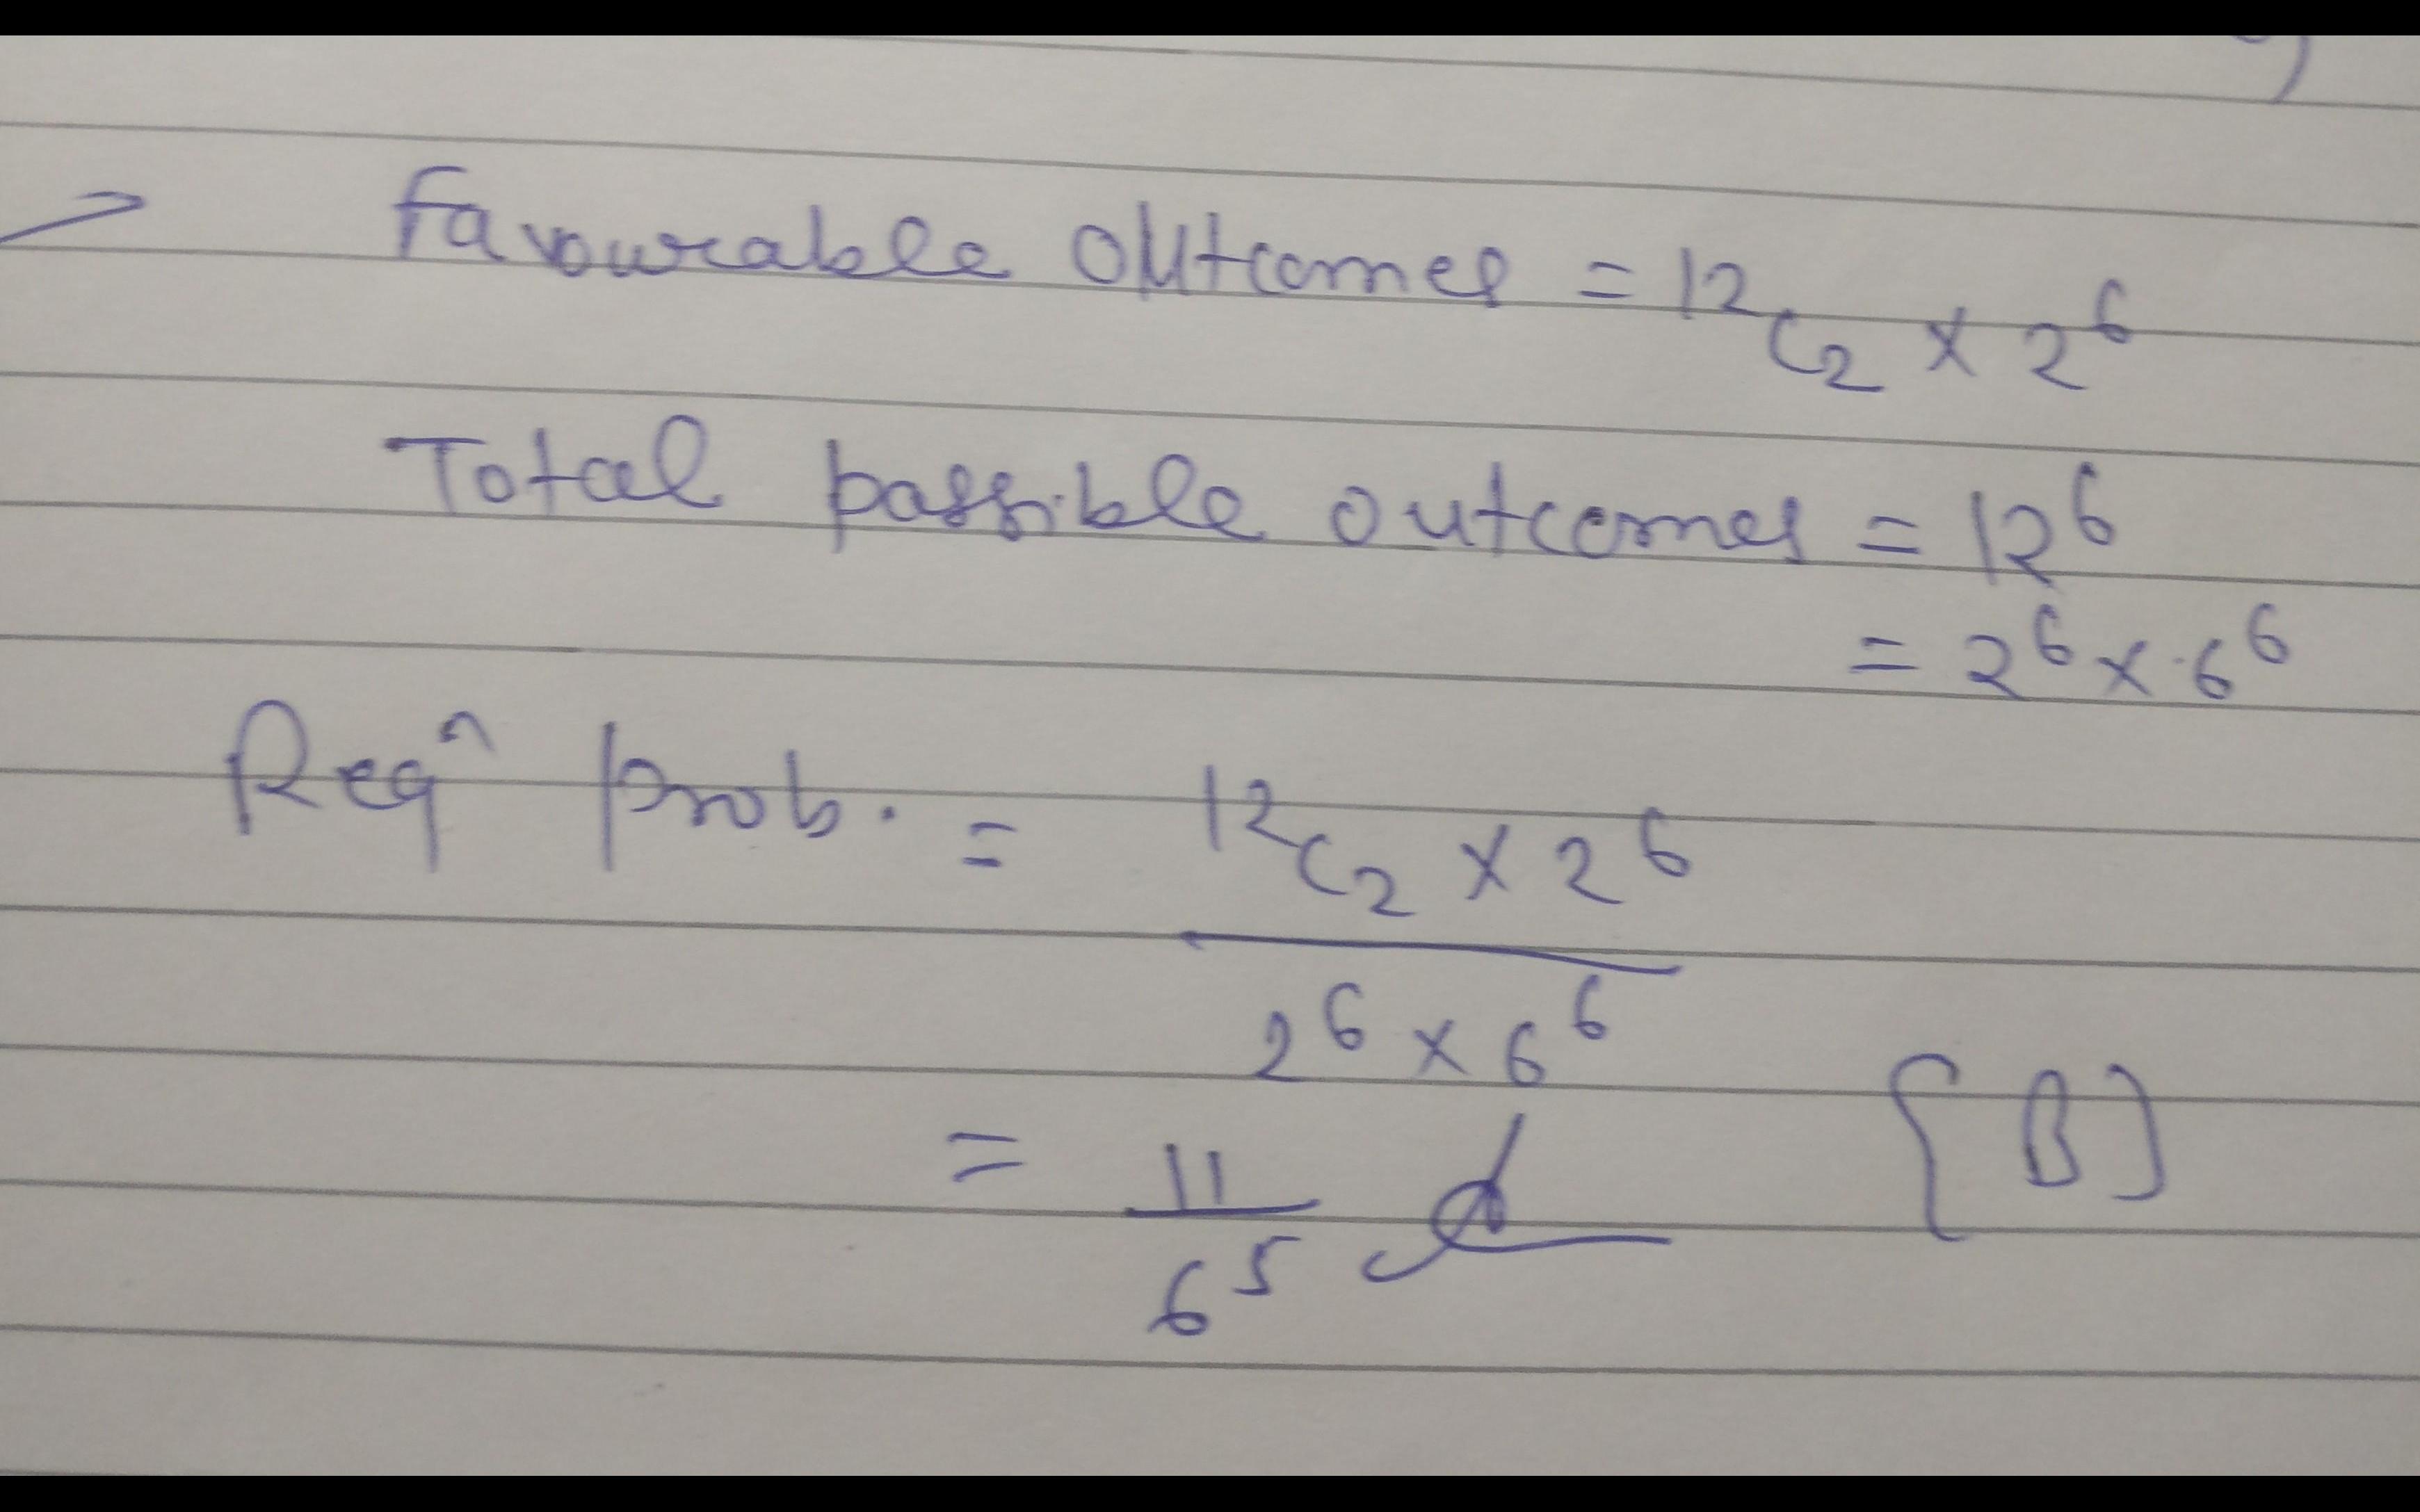 Favourable Outcomes = ¹²C₂ × 2⁶
Total possible outcomes = 12⁶
= 2⁶ × 6⁶
Reqⁿ prob. = ¹²C₂ × 2⁶
2⁶ × 6⁶
= 11
6⁵
[B]